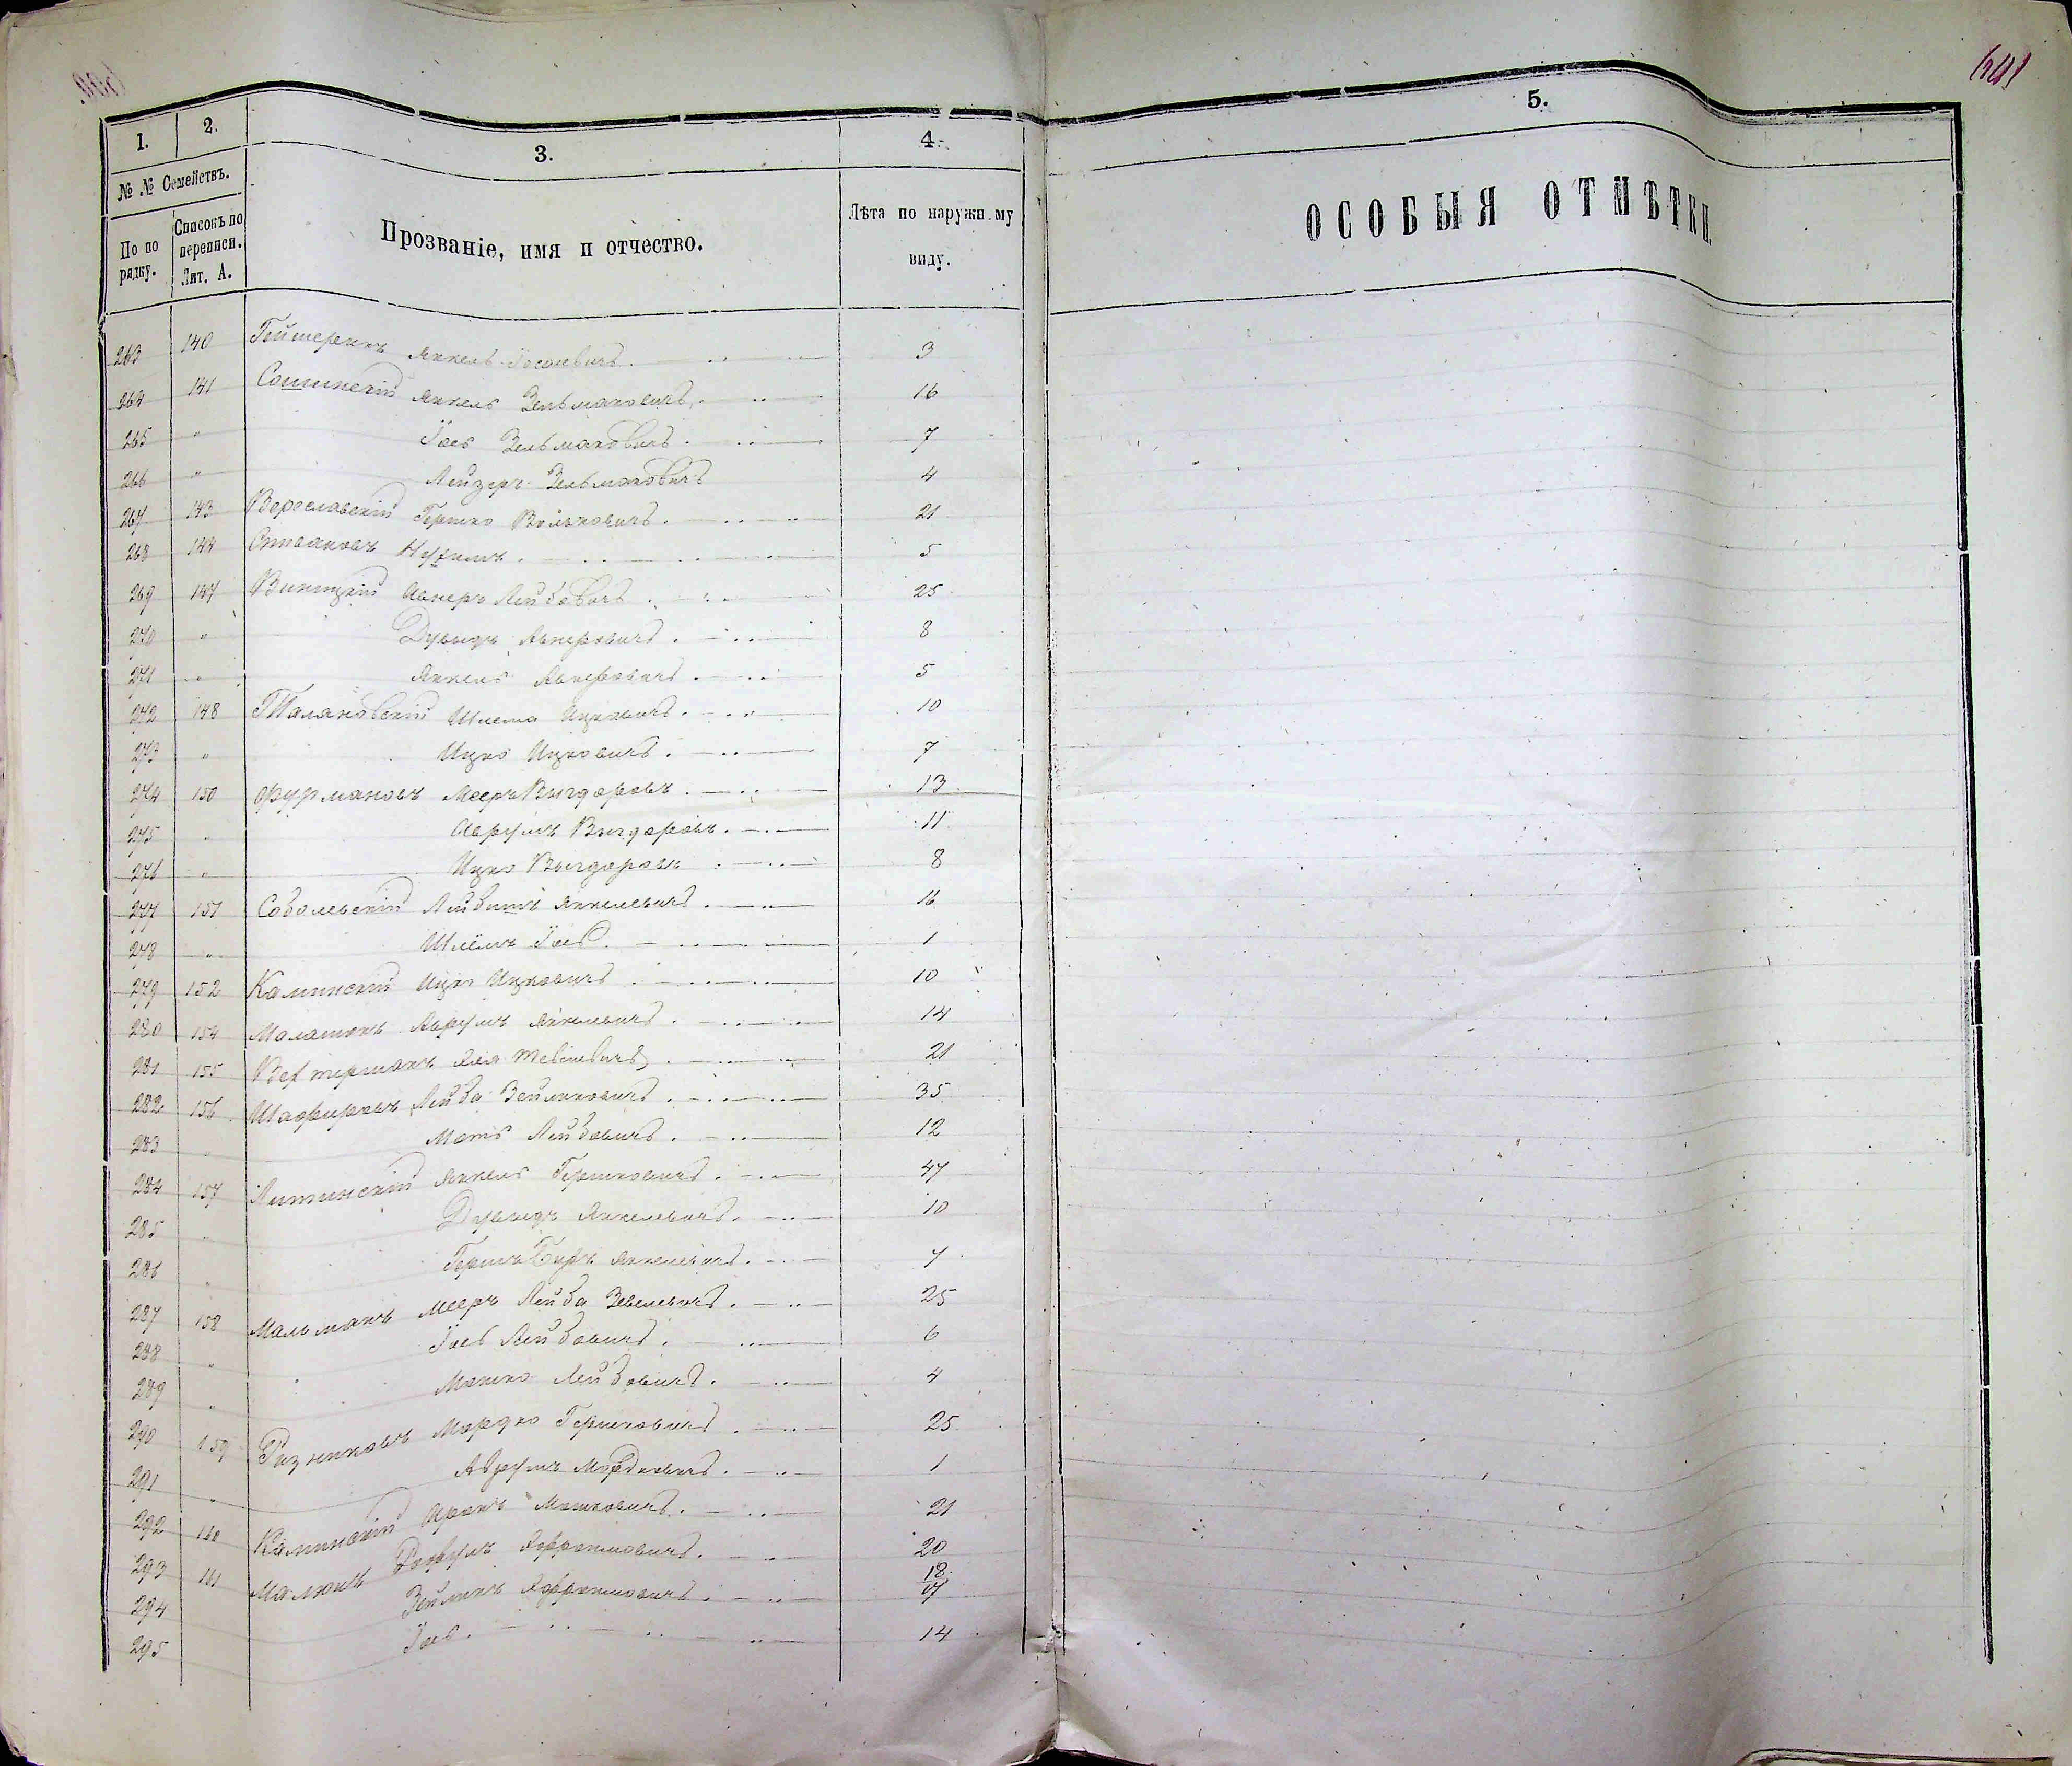 641
1. 2. 3. 4. 5.
№ № Семействъ.
По по рядку. Списокъ по переписи. Лит. А. Прозваніе, имя и отчество. Лѣта по наружн му виду. ОСОБЫЯ ОТМѢТКИ.
263 140 Янкель Іосіовичъ 3
264 141 Янкель Зельмановичъ 16
265 " Іось Зельмановичъ 7
266 " Лейзеръ Зельмановичъ 4
267 143 Вереславскій Гершко Вольковичъ 21
268 144 Спиваковъ Нухимъ 5
269 147 Виницкій Авнеръ Лейбовичъ 25
270 " Дувидъ Авнеровичъ 8
271 " Янкель Авнеровичъ 5
272 148 Таляновскій Шлема Ицковичъ 10
273 " Ицко Ицковичъ 7
274 150 Фурмановъ Мееръ Выгдоровъ 13
275 " Аврумъ Выгдоровъ 11
276 " Ицко Выгдоровъ 8
277 151 Соболевскій Лейбишъ Янкелевичъ 16
278 " Шлёма Іосъ 1
279 152 Каминскій Ицко Ицковичъ 10
280 154 Маламанъ Аврумъ Янкелевичъ 14
281 155 Вехтерманъ 21
282 156 Шафировъ Лейба Зейликовичъ 35
283 " Мотъ Лейбовичъ 12
284 157 Литинскій Янкель Гершковичъ 47
285 " Дувидъ Янкелевичъ 10
286 " Гершъ Беръ Янкелевичъ 7
287 158 Мальманъ Мееръ Лейба 25
288 " Іось Лейбовичъ 6
289 " Мошко Лейбовичъ 4
290 159 Рѣзниковъ Мордко Гершковичъ 25
291 " Аврумъ Мордковичъ 1
292 160 Каминскій Аронъ Мошковичъ 21
293 161 Малкинъ Рафулъ Эфроимовичъ 20
294 Зейликъ Эфроимовичъ 18 17
295 Іось 14